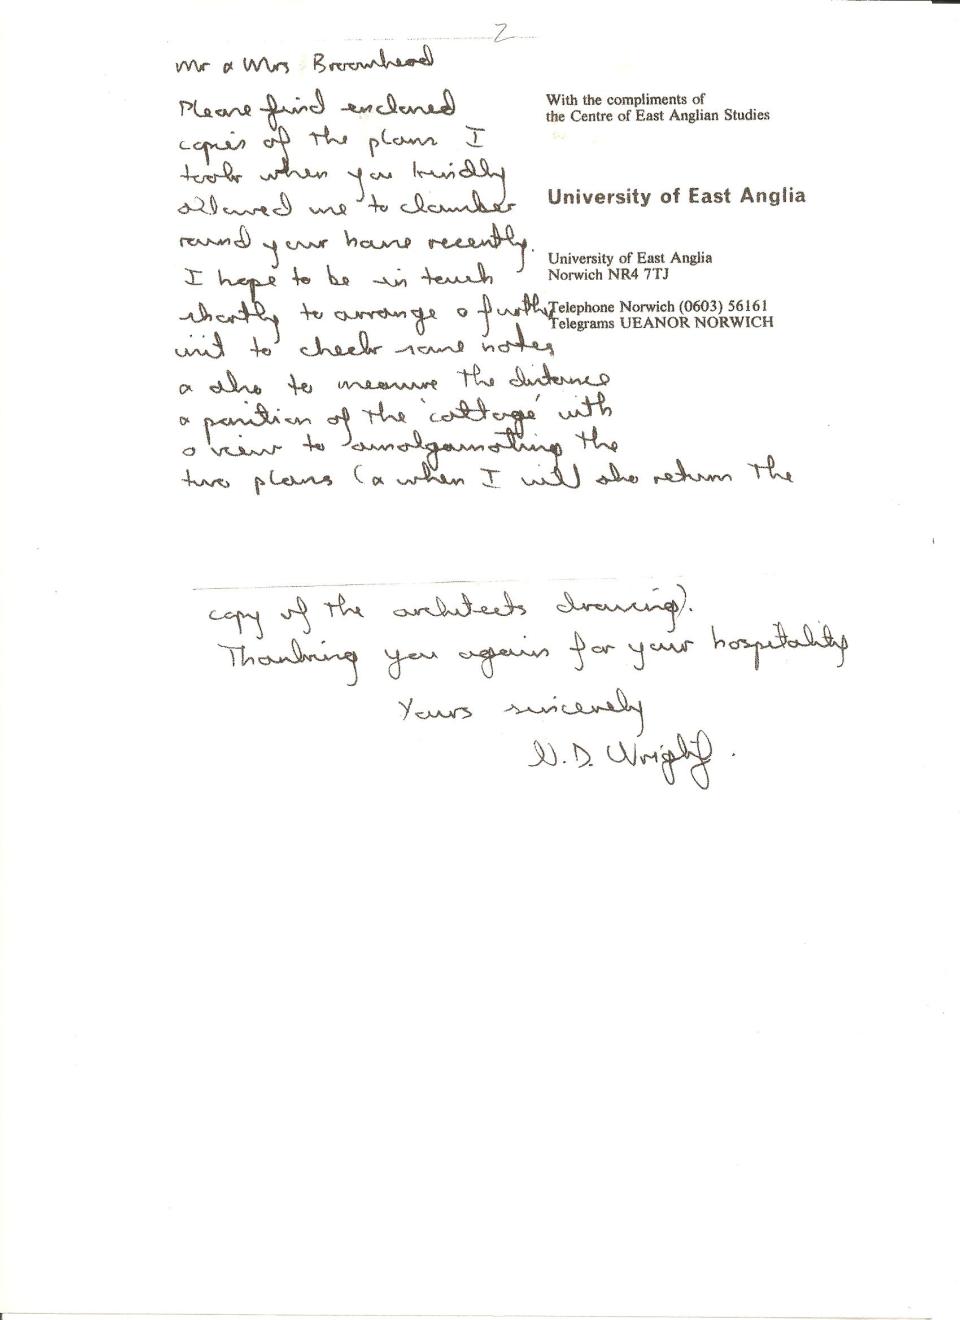 2
Mr & Mrs Broomhead
Please find enclosed
copies of the plans I
took when you kindly
allowed me to clamber
round your home recently.
I hope to be in touch
shortly to arrange a further
visit to check some notes
& also to measure the distance
& position of the 'cottage' with
a view to amalgamating the
two plans (& when I will also return the
copy of the architects drawing).
Thanking you again for your hospitality
Yours sincerely
N. D. Wright.
With the compliments of
the Centre of East Anglian Studies
University of East Anglia
University of East Anglia
Norwich NR4 7TJ
Telephone Norwich (0603) 56161
Telegrams UEANOR NORWICH